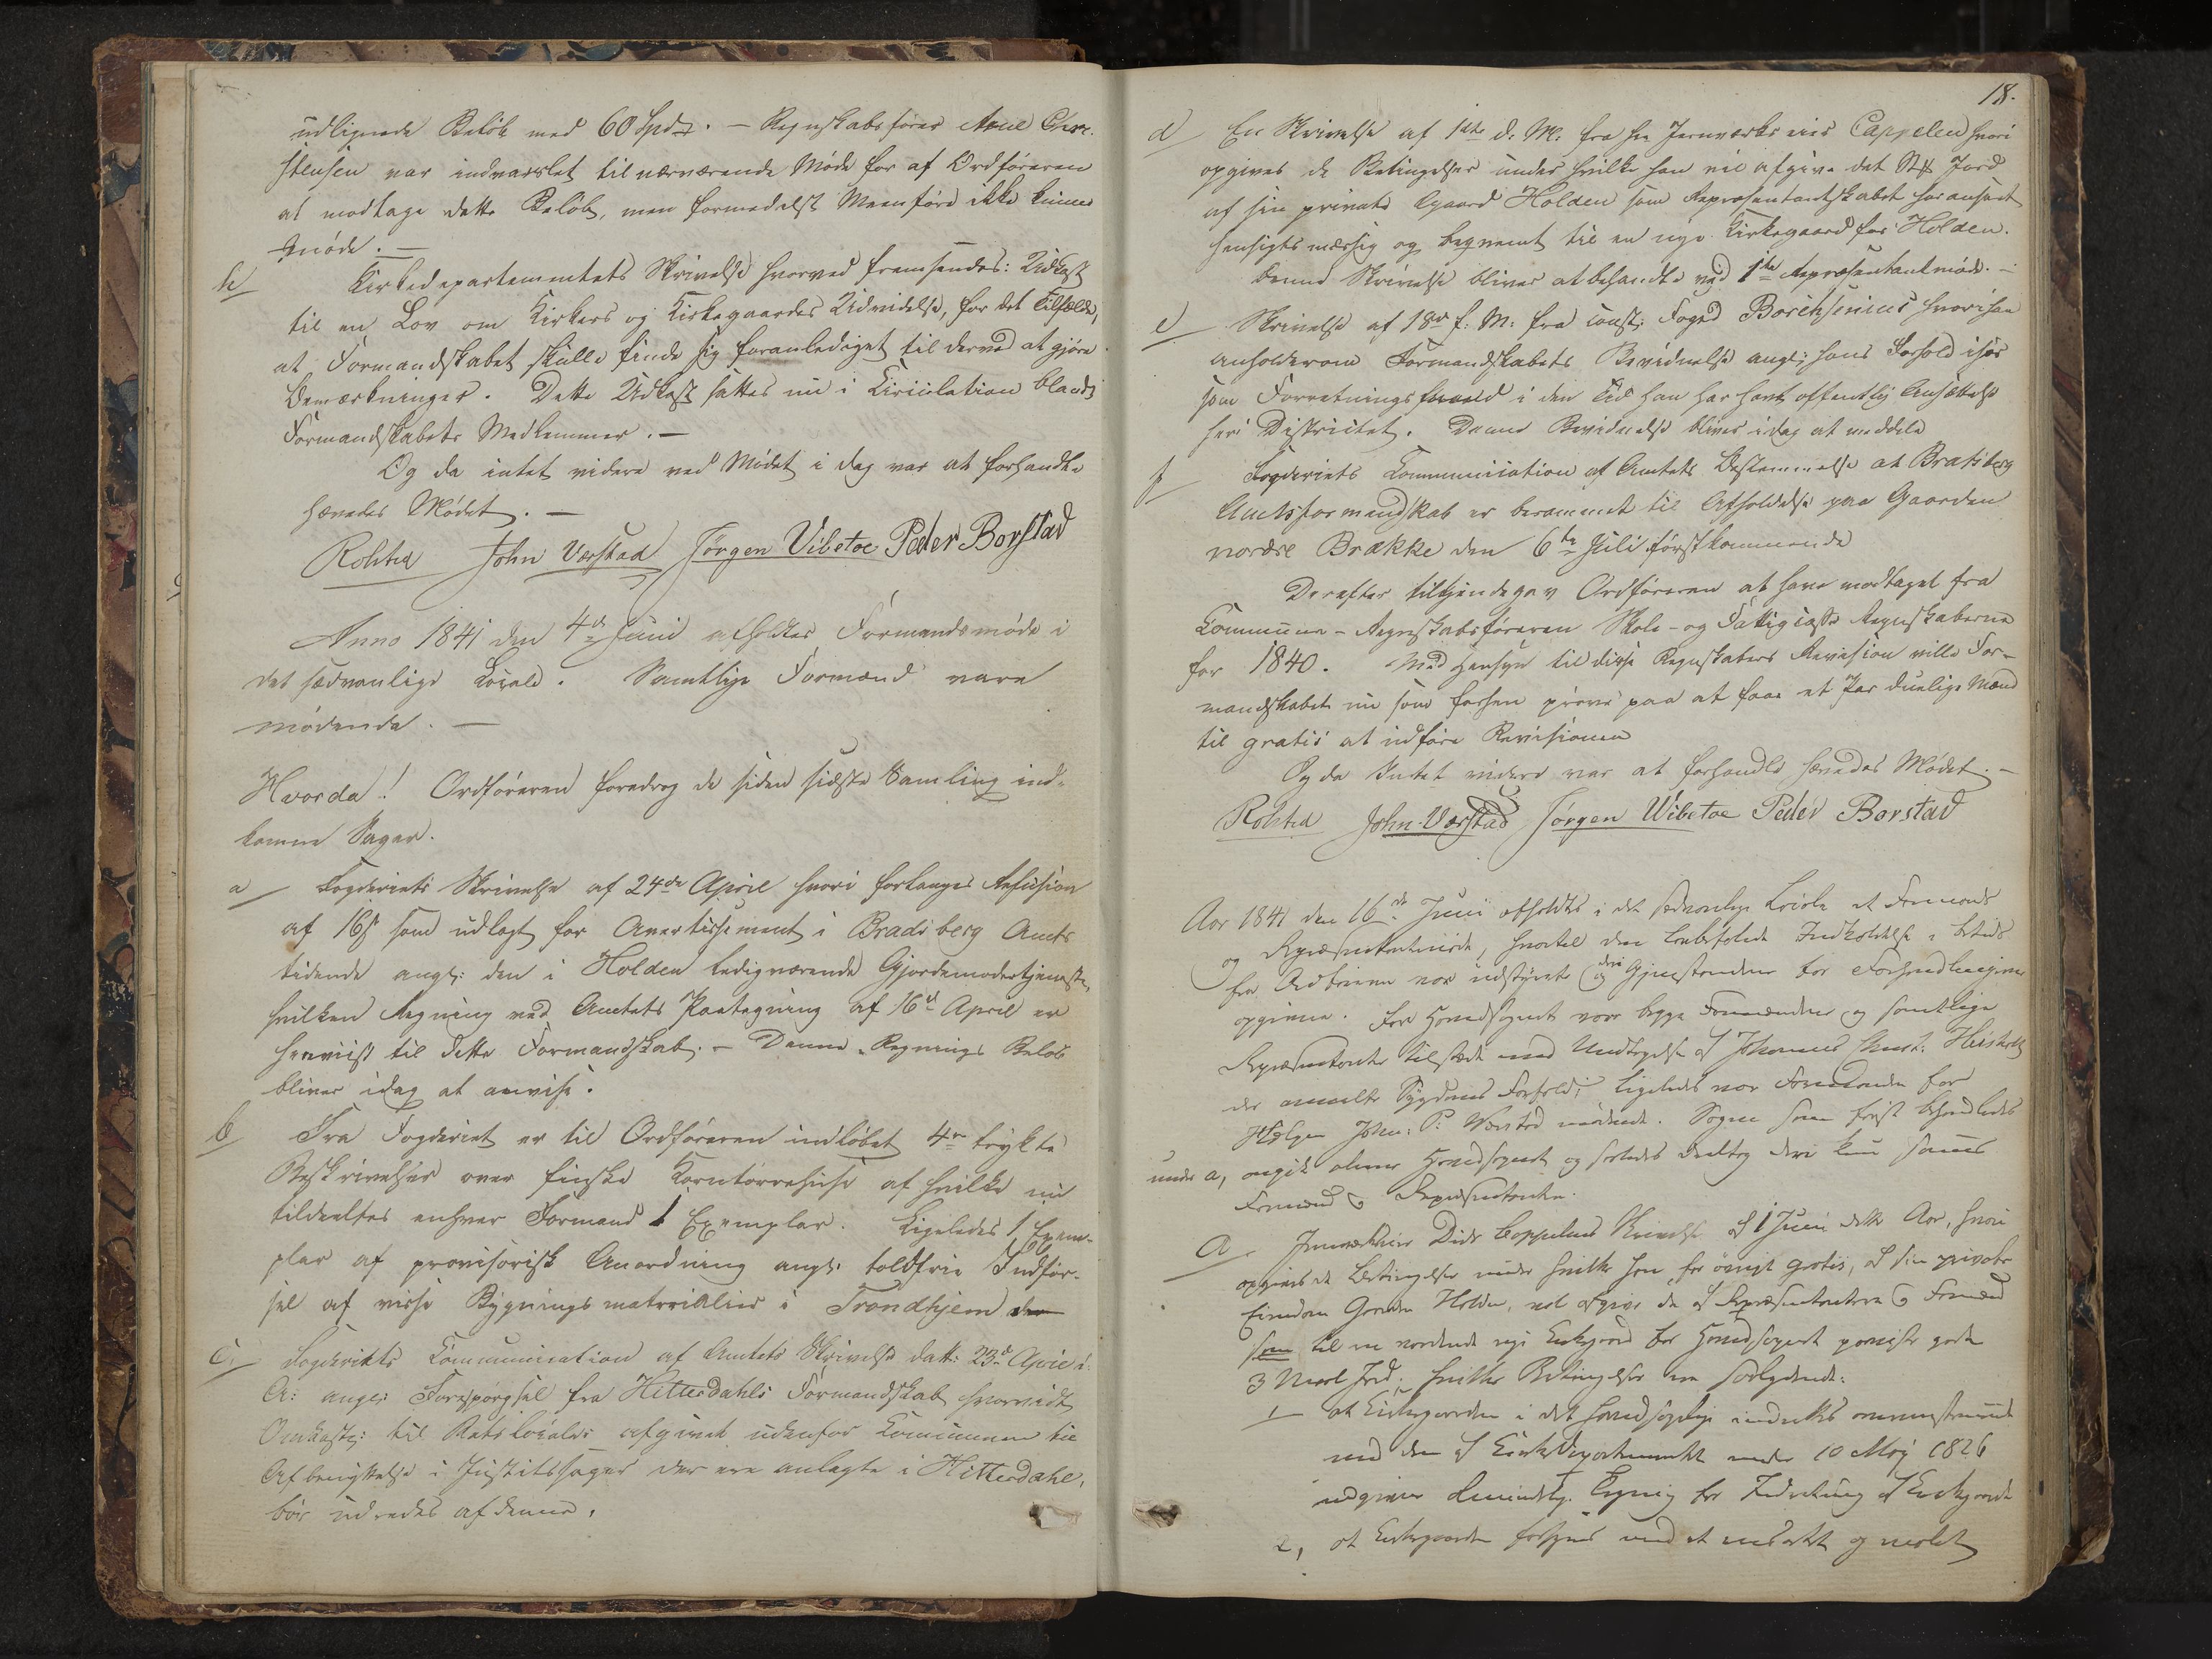 udlignede Beløb med 60 Spd. – Regnskabsfører Aane Chri-
stensen var indvarslet til nærværende Møde for af Ordføreren
at modtage dette Beløb, men formedelst Meenføre ikke kunne
møde. –
h Kirkedepartementets Skrivelse hvorved fremsendes: Udkast
til en Lov om Kirkers og Kirkegaardes Udvidelse, for det Tilfælde,
at Formandskabet skulle finde sig foranlediget til derved at gjøre
Bemærkninger. Dette Udkast sættes nu i Circulation blandt
Formandskabets Medlemmer. –
Og da intet videre ved Mødet i dag var at forhandle
hævedes Mødet. –
Rolsted John Værstad Jørgen Vibetoe Peder Borstad
Anno 1841 den 4de Juni afholdtes Formandsmøde i
det sædvanlige Locale. Samtlige Formænd vare
mødende. –
Hvorda! Ordføreren foredrog de siden sidste Samling ind-
komne Sager.
a Fogderiets Skrivelse af 24de April hvori forlanges Refusion
af 16 s som udlagt for Avertissement i Bradsberg Amts
tidende ang: den i Holden ledigværende Gjordemodertjeneste,
hvilken Regning ved Amtets Paategning af 16de April er
henviist til dette Formandskab. – Denne Regnings Beløb
bliver idag at anvise.
b Fra Fogderiet er til Ordføreren indløbet 4re trykte
Beskrivelser over finske Korntørrehuse af hvilke nu
tildeeltes enhver Formand 1 Exemplar. Ligeledes 1 Exem-
plar af provisorisk Anordning ang: toldfrie Indfør-
sel af visse Bygningsmaterialier i Trondhjem
c. Fogderiets Communication af Amtets Skrivelse dat: 23de April d:
A: ang: Forespørgsel fra Hitterdahls Formandskab hvorvidt
Omkostn: til Retslocaler afgivet udenfor Communen til
Afbenyttelse i Justitssager der ere anlagte i Hitterdahl,
bør udredes af denne.
18.
d En Skrivelse af 1ste d: M: fra Hr Jernværkseier Cappelen hvori
opgives de Betingelser under hvilke han vil afgive det St: Jord
af sin private Gaard Holden som Repræsentantskabet har anseet
hensigtsmæssig og beqvemt til en nye Kirkegaard for Holden.
Denne Skrivelse bliver at behandle ved 1ste Repræsentantmøde. –
e Skrivelse af 18de f: M: fra const: Foged Borchsenius hvori han
anholder om Formandskabets Bevidnelse ang: hans Forhold især
som Forretningsmand i den Tid han har havt offentlig Ansættelse
her i Districtet. Denne Bevidnelse bliver idag at meddele
f Fogderiets Communication af Amtets Bestemmelse at Bratsberg
Amtsformandskab er berammet til Afholdelse paa Gaarden
nordre Brække den 6te Juli førstkommende
Derefter tilkjendegav Ordføreren at have modtaget fra
Commune-Regnskabsføreren Skole- og Fattigcasse Regnskaberne
for 1840. Med Hensyn til disse Regnskabers Revision ville For-
mandskabet nu som forhen prøve paa at faae et Par duelige Mænd
til gratis at udføre Revisionen
Og da Intet videre var at forhandle hævedes Mødet. –
Rolsted John Værstad Jørgen Wibetoe Peder Borstad
Aar 1841 den 16de Juni afholdtes i det sædvanlige Locale et Formands
og Repræsentantmøde, hvortil den Indkaldelse
fra Ordføreren var udstædt og deri Gjenstandene for Forhandlingerne
opgivne. For Hovedsognet var begge Formændene og samtlige
Repræsentanter tilstæde med Undtagelse af Johannes Christ:
der anmeldte Sygdoms Forfald; ligeledes var Formanden for
Helgen John: P: Værstad mødende. Sagen som først behandledes
under a, angik alene Hovedsognet og saaledes deeltog deri kun sammes
Formænd og Repræsentanter.
a. Jernværkseier Did: Cappelens Skrivelse af 1 Juni dette Aar, hvori
opgives de Betingelser under hvilke han for øvrigt gratis, af sin private
Eiendom Gaarden Holden, vil afgive de af Repræsentanterne og Formænd
som til en vordende nye Kirkegaard for Hovedsognet
3 Maal Jord; hvilke Betingelser ere saalydende:
1 at Kirkegaarden i det hovedsagelige indrettes overensstemmende
med den af Kirkedepartementet under 10 May 1826
udgivne Almindelig for Indretning af Kirkegaarde
2, at Kirkegaarden forsynes med et og